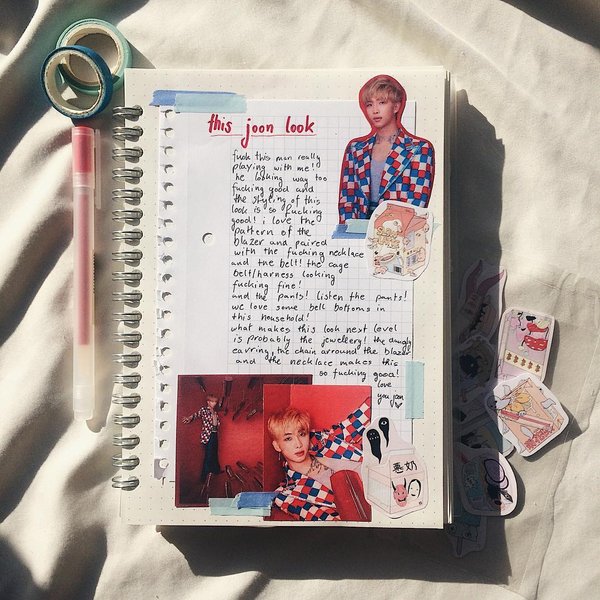 this joon look
fuck this man really
playing with me!
he looking way too
fucking good and
the styling of this
look is so fucking
good! i love the
pattern of the
blazer and paired
with the fucking necklace
and the belt! the cage
belt/harness looking
fucking fine!
and the pants! listen the pants!
we love some bell bottoms in
this household!
what makes this look next level
is probably the jewellery! the dangly
earring, the chain arround the blazer
and the necklace makes this
so fucking good!
love
you joon